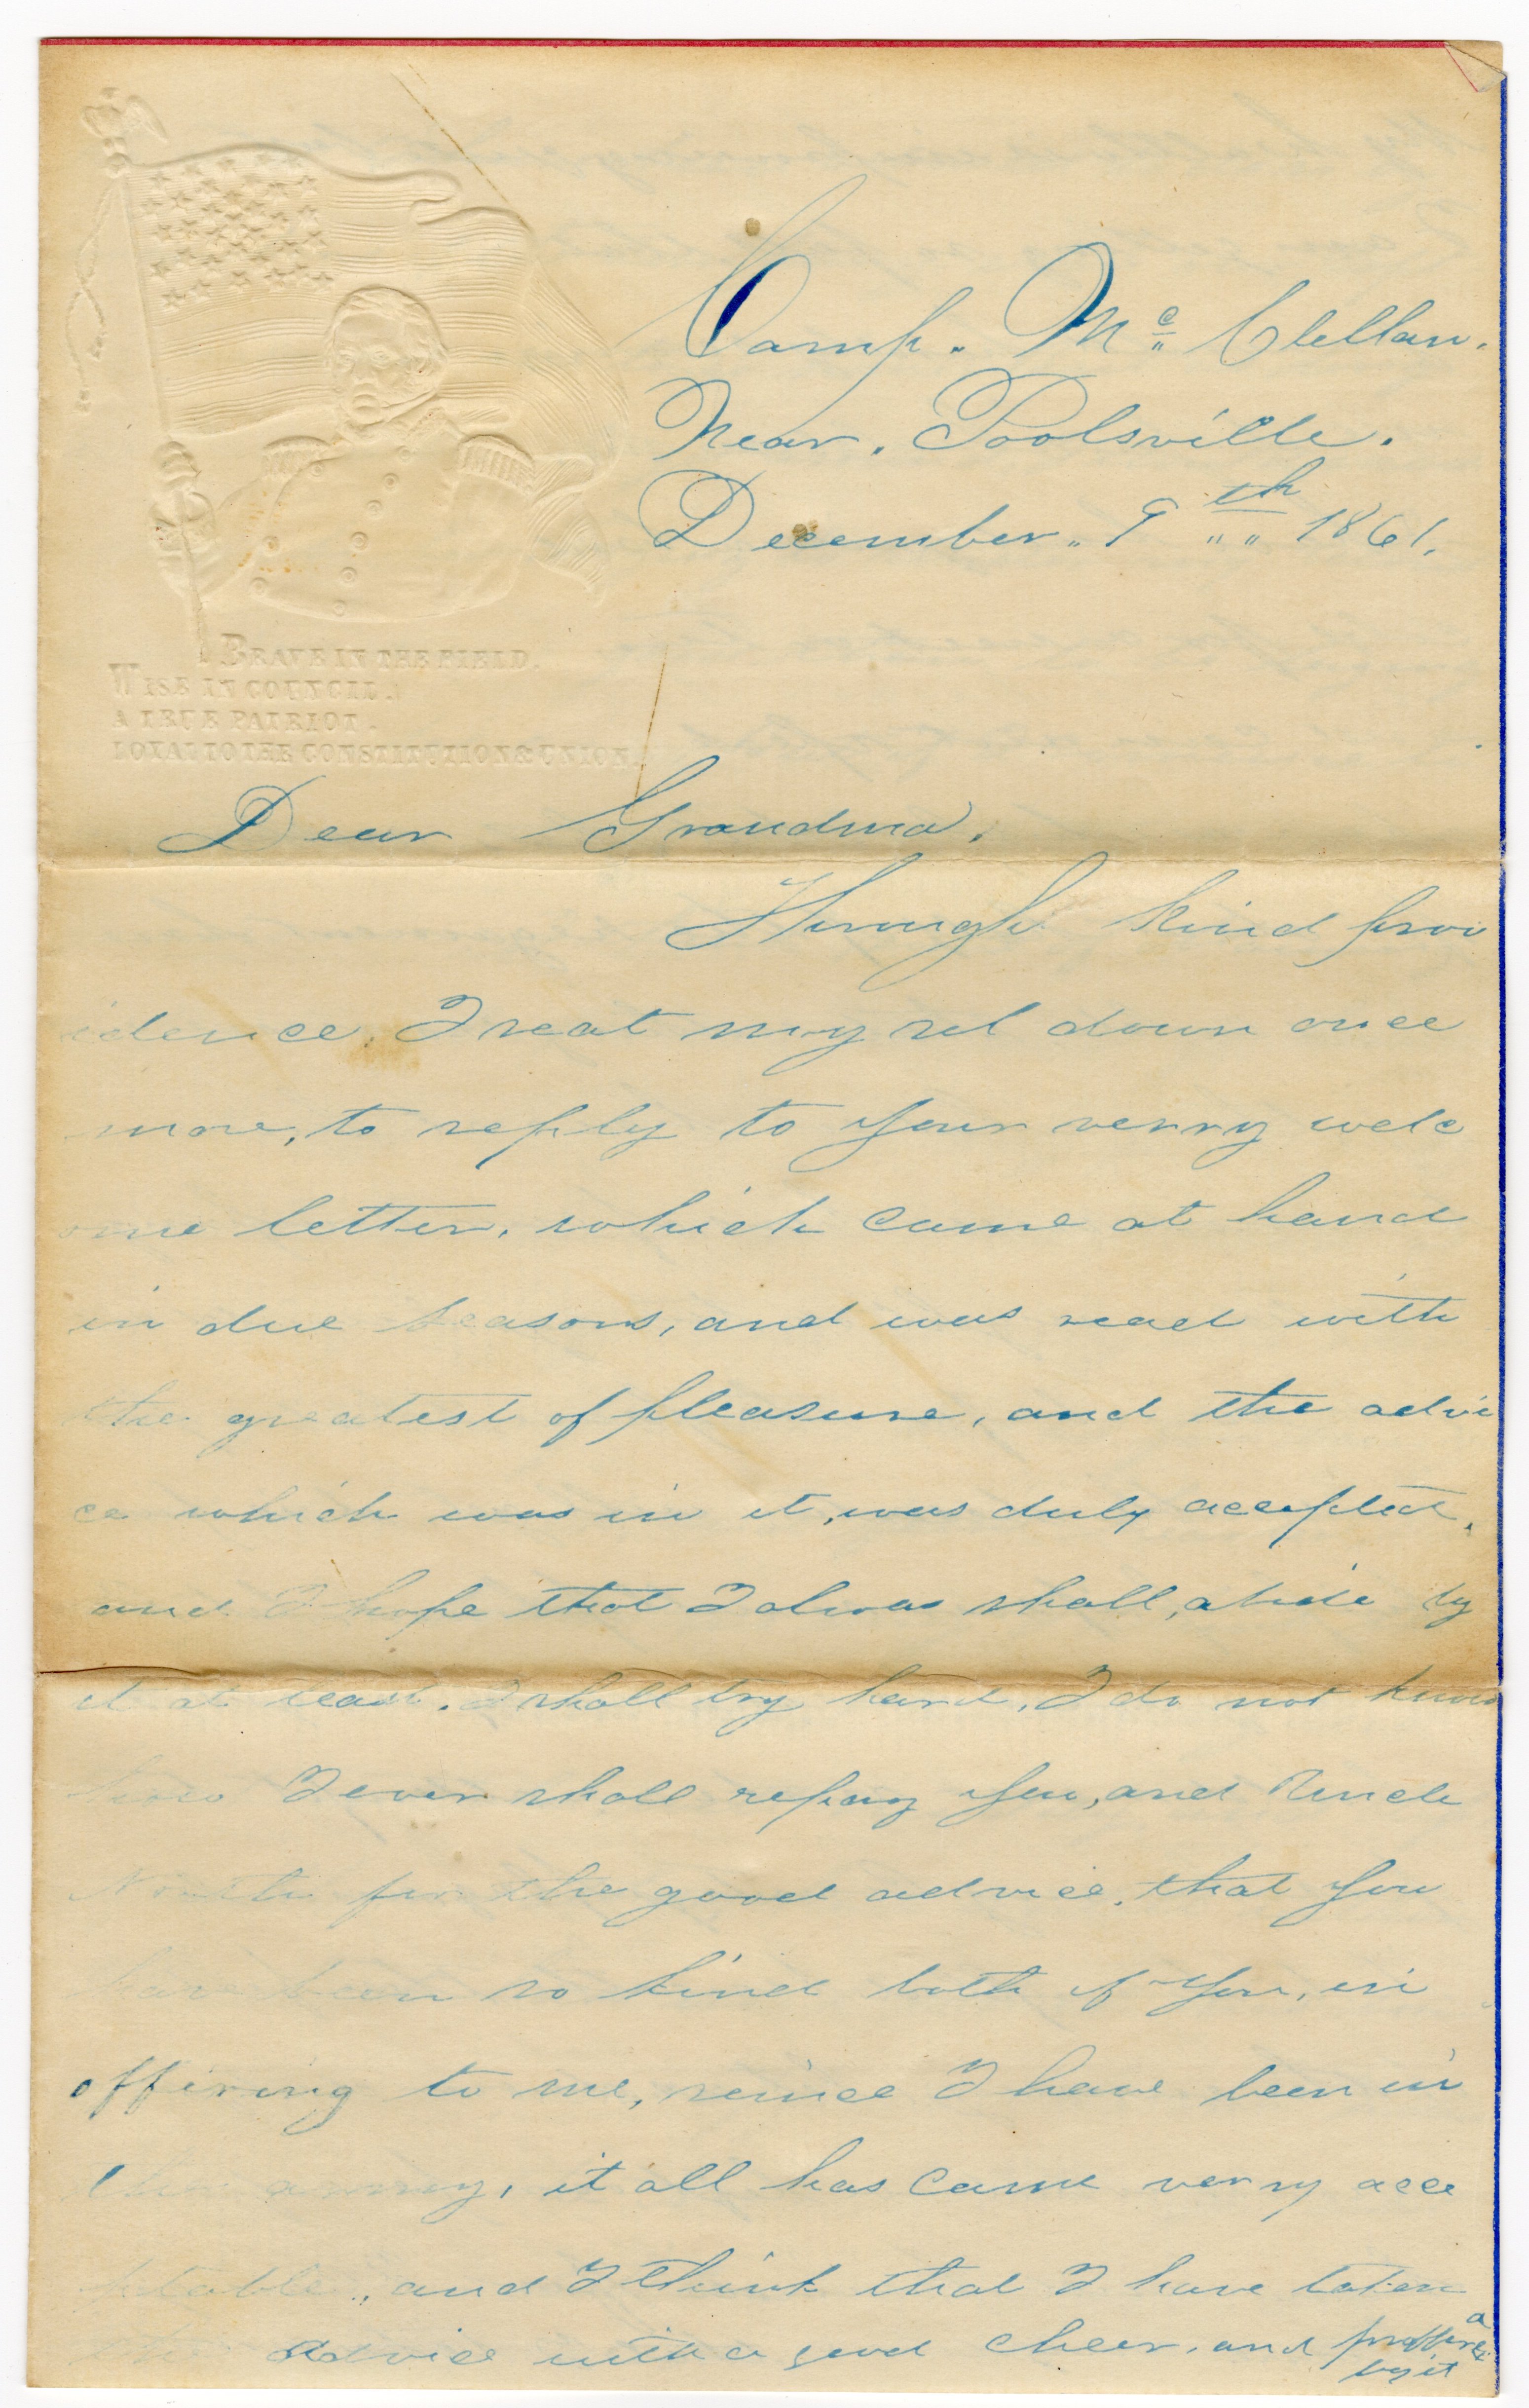 BRAVE IN THE FIELD.
WISE IN COUNCIL.
A TRUE PATRIOT.
LOYAL TO THE CONSTITUTION & UNION.
Camp. Mc Clellan.
Near. Poolsville.
December. 9th 1861.
Dear Grandma.
Through kind prov
idence. I seat my sel down once
more, to reply to your verry welc
ome letter, which came at hand
in due seasons, and was read with
the greatest of pleasure, and the advi
ce which was in it, was duly accepted.
and I hope that I alwas shall, abide by
it at least. I shall try hard, I do not know
how I ever shall repay you, and Uncle
for the good advice, that you
have been so kind both of you, in
offiring to me, since I have been in
the army, it all has came verry acce
ptable, and I think that I have taken
the advice with a good cheer, and
by it